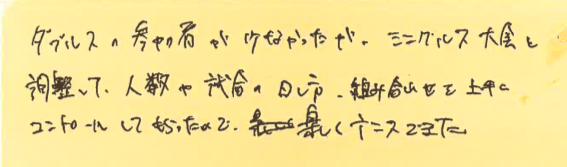 ダブルスの参加者が少なかったが、シングルス大会と
調整して、人数や試合の日し方、組み合わせを上手に
コントロールしてもらったので、楽しくテニスできた